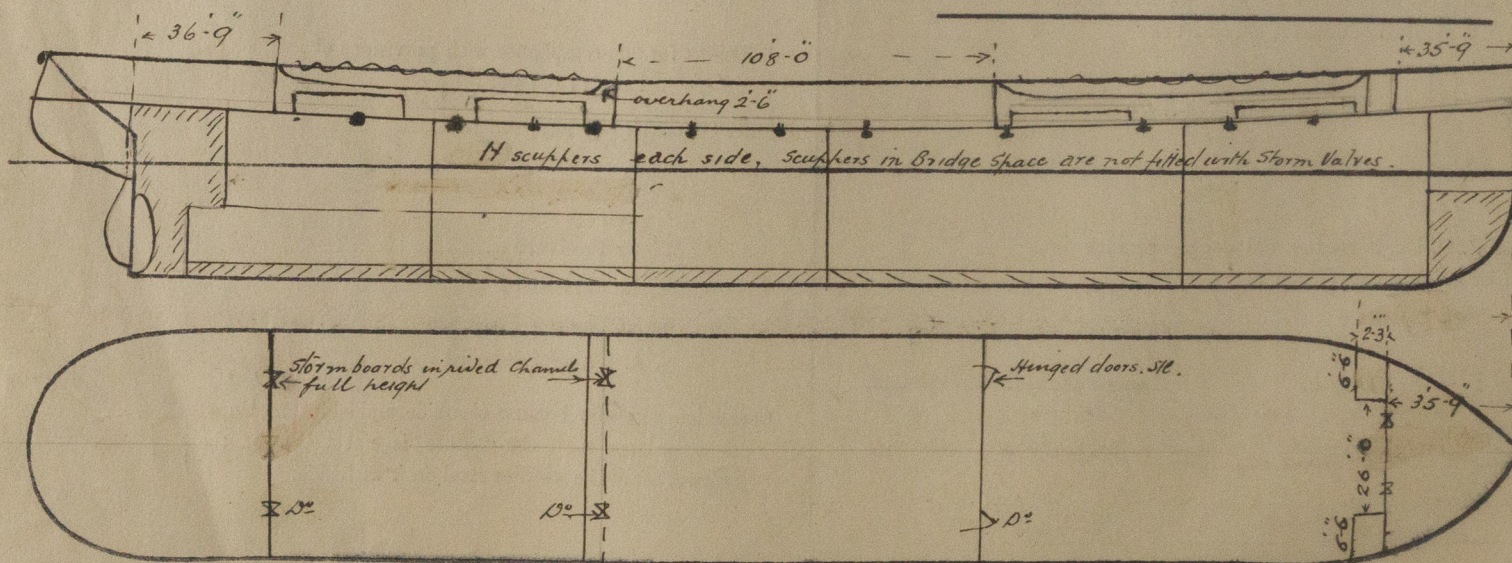 36'-9"
108'-0"
35'-9"
overhang 2'-6"
14 scuppers each side, Scuppers in Bridge Space are not fitted with Storm Valves.
Storm boards in rived Channels
full height
Hinged doors. Stl.
2'-3"
6'-6"
35'-9"
26'-0"
Do
Do
Do
6'-6"